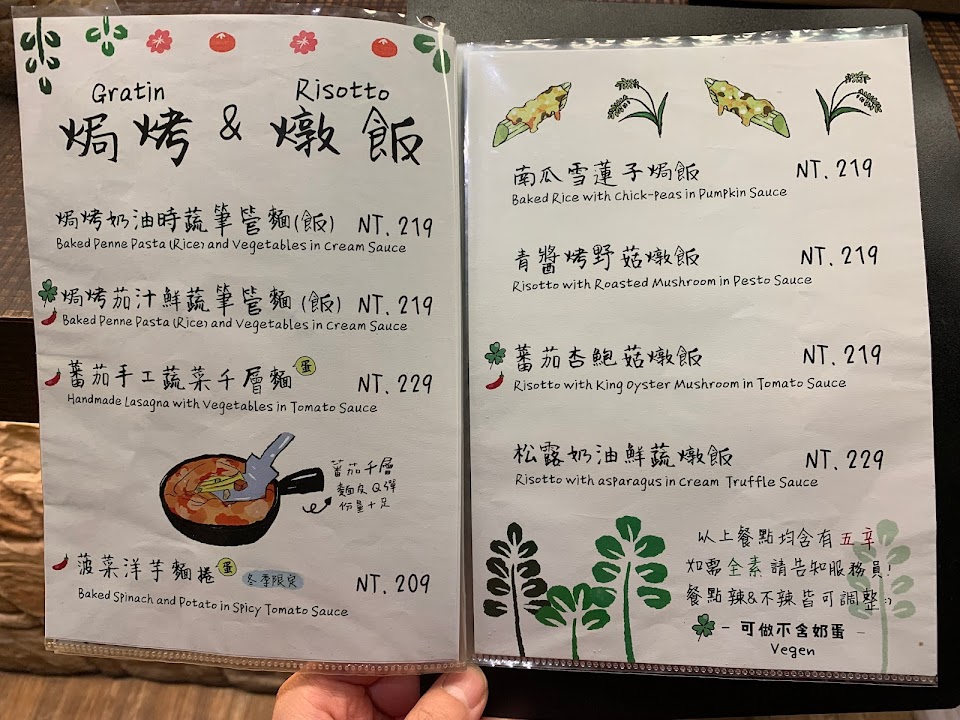 Gratin
Risotto
焗烤 & 燉飯
焗烤奶油時蔬筆管麵(飯) NT. 219
Baked Penne Pasta (Rice) and Vegetables in Cream Sauce
焗烤茄汁鮮蔬筆管麵(飯) NT. 219
Baked Penne Pasta (Rice) and Vegetables in Cream Sauce
蕃茄手工蔬菜千層麵 蛋 NT. 229
Handmade Lasagna with Vegetables in Tomato Sauce
蕃茄千層
麵皮Q彈
份量十足
菠菜洋芋麵捲 蛋 冬季限定 NT. 209
Baked Spinach and Potato in Spicy Tomato Sauce
南瓜雪蓮子焗飯 NT. 219
Baked Rice with Chick-Peas in Pumpkin Sauce
青醬烤野菇燉飯 NT. 219
Risotto with Roasted Mushroom in Pesto Sauce
蕃茄杏鮑菇燉飯 NT. 219
Risotto with King Oyster Mushroom in Tomato Sauce
松露奶油鮮蔬燉飯 NT. 229
Risotto with asparagus in Cream Truffle Sauce
以上餐點均含有五辛
如需全素請告知服務員!
餐點辣&不辣皆可調整:)
- 可做不含奶蛋 -
Vegen